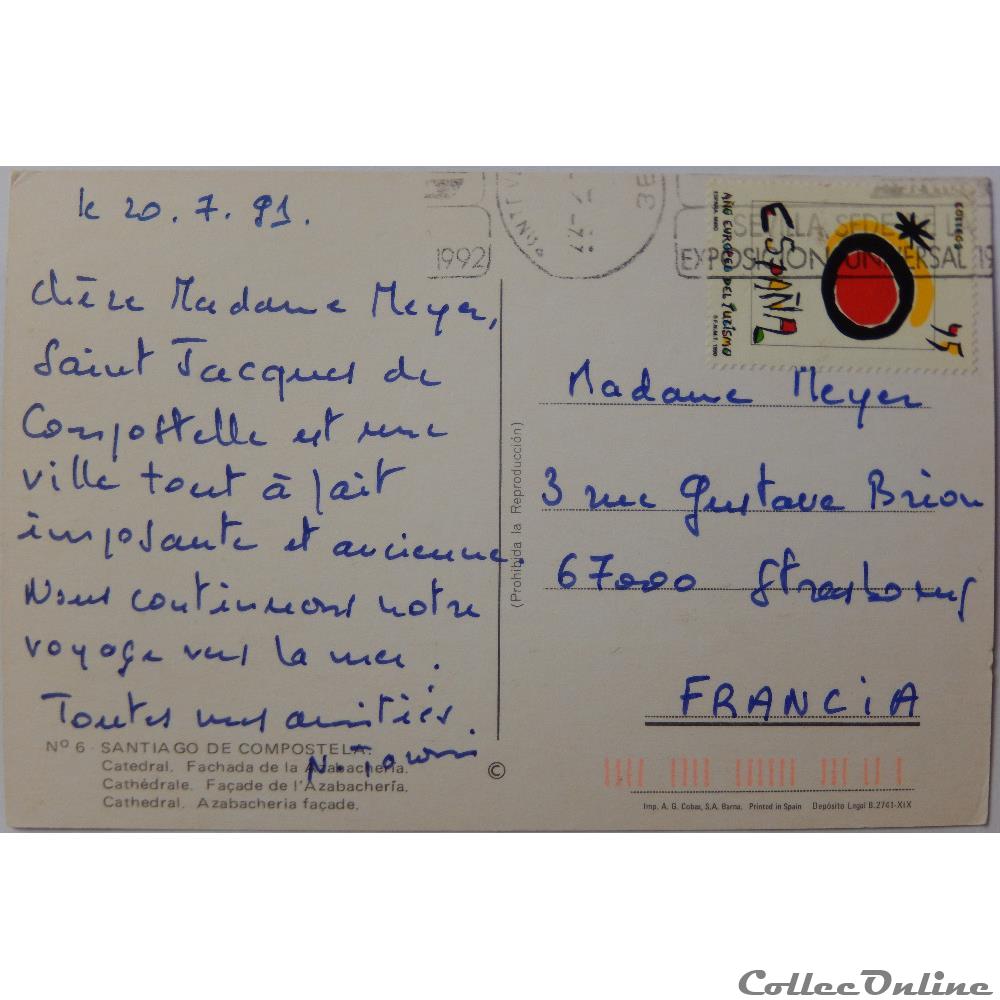 le 20.7.91.
Chère Madame Meyer,
Saint Jacques de
Compostelle est une
ville tout à fait
imposante et ancienne.
Nous continuons notre
voyage vers la mer.
Toutes nos amitiés
Nº 6 - SANTIAGO DE COMPOSTELA.
Catedral. Fachada de la Azabachería.
Cathédrale. Façade de l'Azabachería.
Cathedral. Azabacheria façade.
©
(Prohibida la Reproducción)
1992
SEVILLA, SEDE
EXPOSICION UNIVERSAL 19
AÑO EUROPEO DEL TURISMO
ESPAÑA
CORREOS
45
Madame Meyer
3 rue Gustave Brion
67000 Strasbourg
FRANCIA
Imp. A. G. Cobas, S.A. Barna. Printed in Spain Depósito Legal B.2741-XIX
CollecOnline